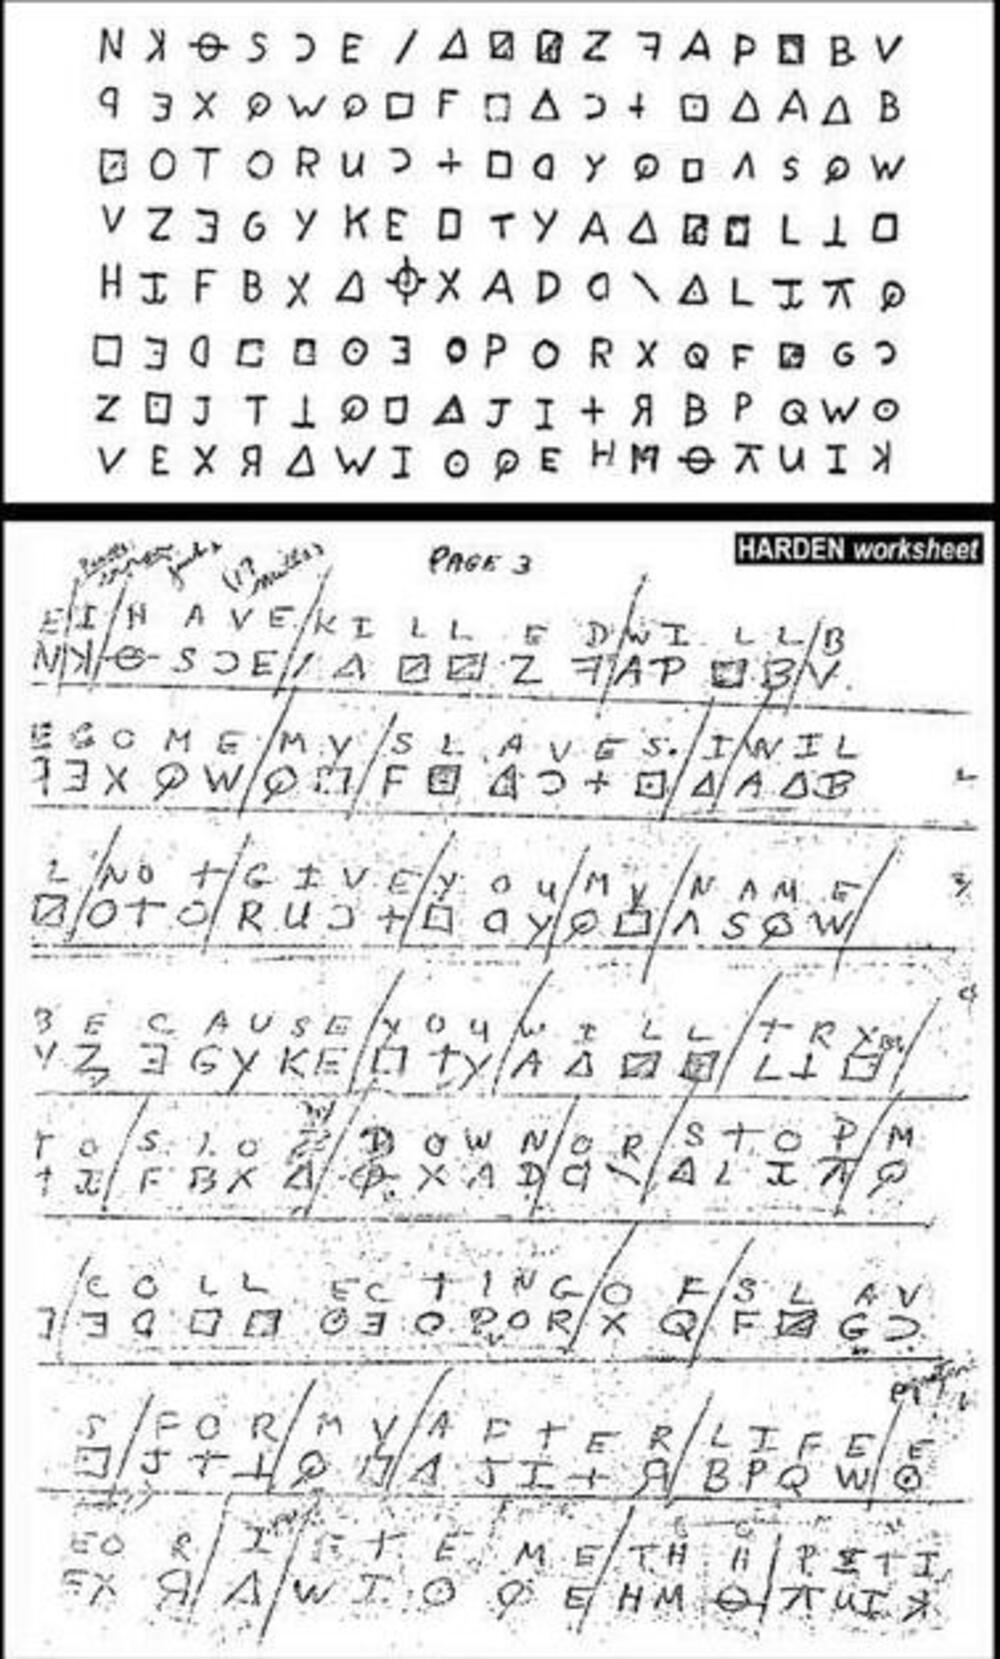 N ʞ ⊖ S Ɔ E / △ ▨ ▨ Z ꟻ A P ◩ B V
ꟼ Ǝ X ⌀ W ⌀ □ F □ △ Ɔ + ⊡ △ A △ B
▨ O T O R U Ɔ + □ ᗡ Y ⌀ □ Λ S ⌀ W
V Z Ǝ G Y K E □ T Y A △ ▨ ◩ L ⊥ □
H I F B X △ ⌖ X A D ᗡ \ ◬ L I ⊼ ⌀
□ Ǝ ᗡ □ ⊡ ⊙ Ǝ ⊙ P O R X Q F ▨ G Ɔ
Z ⊡ J T ⊥ ⌀ □ ◬ J I + Я B P Q W ⊙
V E X Я △ W I ⊙ ⌀ E H M ⊖ ⊼ U I ʞ
HARDEN worksheet
PAGE 3
E/I/H A V E/K I L L E D/W I L L/B
N/ʞ/⊖ S Ɔ E / △ ▨ ▨ Z ꟻ/A P ◩ B/V
E C O M E/M Y/S L A V E S./I/W I L
ꟼ Ǝ X ⌀ W/⌀ □/F ⊡ ◬ Ɔ + ⊡/△/A △ B
L/N O T/G I V E/Y O U/M Y/N A M E/
▨/O T O/R U Ɔ +/□ ᗡ Y/⌀ □/Λ S ⌀ W/
B E C A U S E/Y O U/W I L L/T R Y/
V Z Ǝ G Y K E/□ T Y/A △ ▨ ◩/L ⊥ □/
T O/S L O W/D O W N/O R/S T O P/M
+ I/F B X △/⌖ X A D/ᗡ \/◬ L I ⊼/⌀
/C O L L E C T I N G/O F/S L A V
/Ǝ ᗡ □ ⊡ ⊙ Ǝ O P O R/X Q/F ▨ G Ɔ
S/F O R/M Y/A F T E R/L I F E/E
⊡/J T ⊥/⌀ □/◬ J I + Я/B P Q W/⊙
E O R/I/E T E M E/T H H/P E T I
E X Я/△/W I ⊙ ⌀ E/H M ⊖/⊼ U I ʞ